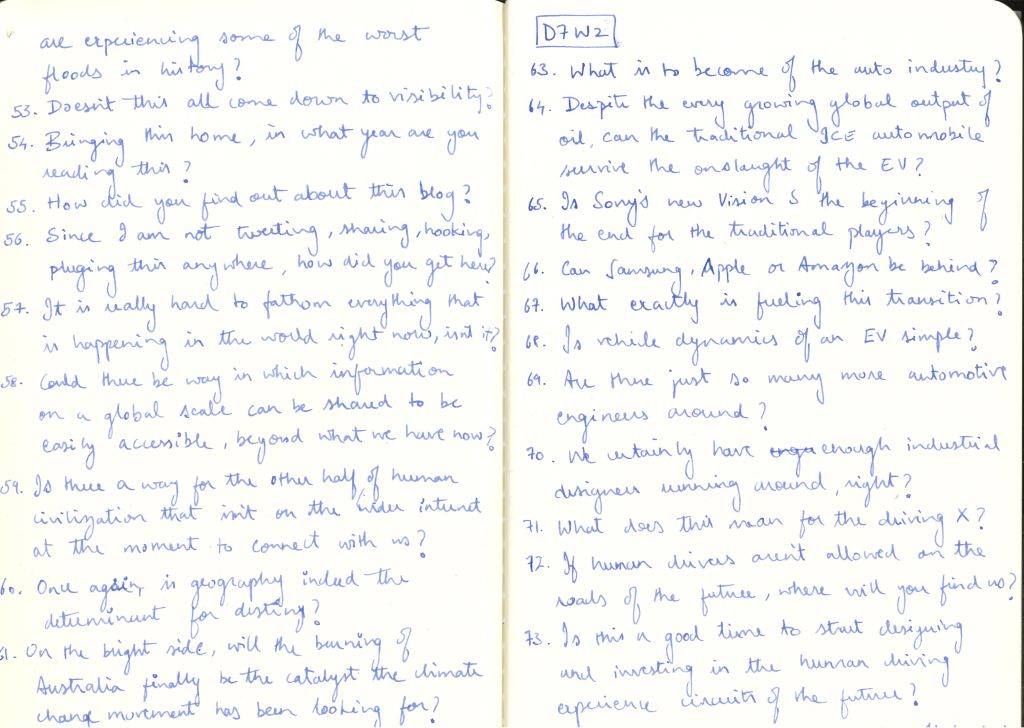 are experiencing some of the worst
floods in history?
53. Doesn't this all come down to visibility?
54. Bringing this home, in what year are you
reading this?
55. How did you find out about this blog?
56. Since I am not tweeting, sharing, hooking,
pluging this anywhere, how did you get here?
57. It is really hard to fathom everything that
is happening in the world right now, isnt it?
58. Could there be way in which information
on a global scale can be shared to be
easily accessible, beyond what we have now?
59. Is there a way for the other half of human
civilization that isn't on the internet
at the moment to connect with us?
60. Once again, is geography indeed the
determinant for destiny?
61. On the bright side, will the burning of
Australia finally be the catalyst the climate
change movement has been looking for?
D7W2
63. What is to become of the auto industry?
64. Despite the every growing global output of
oil, can the traditional ICE automobile
survive the onslaught of the EV?
65. Is Sony's new Vision S the beginning of
the end for the traditional players?
66. Can Samsung, Apple or Amazon be behind?
67. What exactly is fueling this transition?
68. Is vehicle dynamics of an EV simple?
69. Are there just so many more automotive
engineers around?
70. We certainly have enough industrial
designers running around, right?
71. What does this mean for the driving X?
72. If human drivers aren't allowed on the
roads of the future, where will you find us?
73. Is this a good time to start designing
and investing in the human driving
experience circuits of the future?